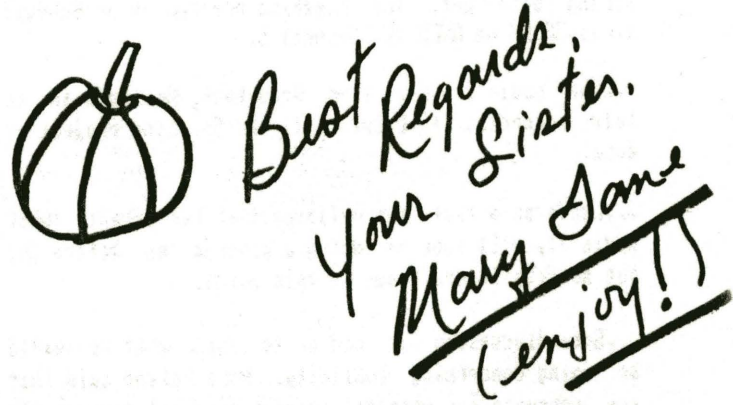 Best Regards,
Your Sister,
Mary Jane
(enjoy!!)